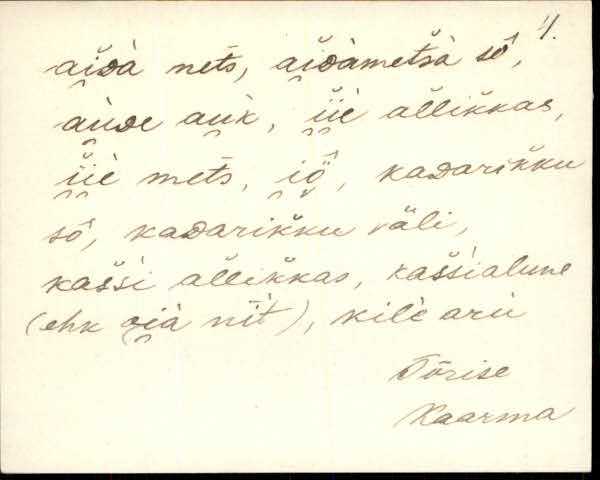 4.
ai̯dà net̆s, ai̯dàmet̆sà sô,
au̯de au̯k, i̯i̯è allik̆kas,
i̯i̯è met̆s, i̯ô̯, kadarik̆ku
sô, kadarik̆ku väli,
kas̆si allik̆kas, kas̆sialune
(ehk o̯i̯à nīt), kilè aru
Tõrise
Kaarma